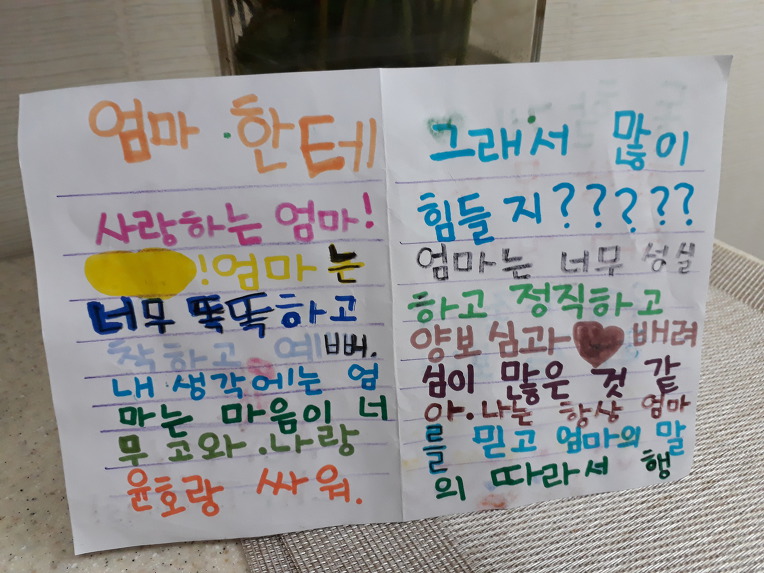 엄마 한테
사랑하는 엄마!
! 엄마는
너무 똑똑하고
착하고 예뻐.
내 생각에는 엄
마는 마음이 너
무 고와. 나랑
윤호랑 싸워.
그래서 많이
힘들지?????
엄마는 너무 성실
하고 정직하고
양보심과 배려
심이 많은 것 같
아. 나는 항상 엄마
를 믿고 엄마의 말
의 따라서 행